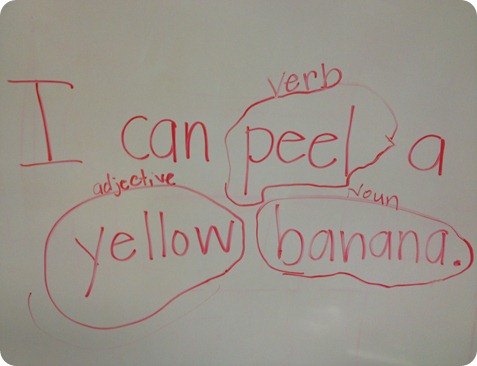 verb
I can peel a
adjective noun
yellow banana.